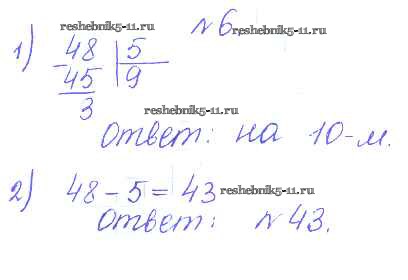 reshebnik5-11.ru № 6.
1) 48 | 5
45 | 9
3
reshebnik5-11.ru
Ответ: на 10-м.
2) 48 - 5 = 43 reshebnik5-11.ru
Ответ: № 43.